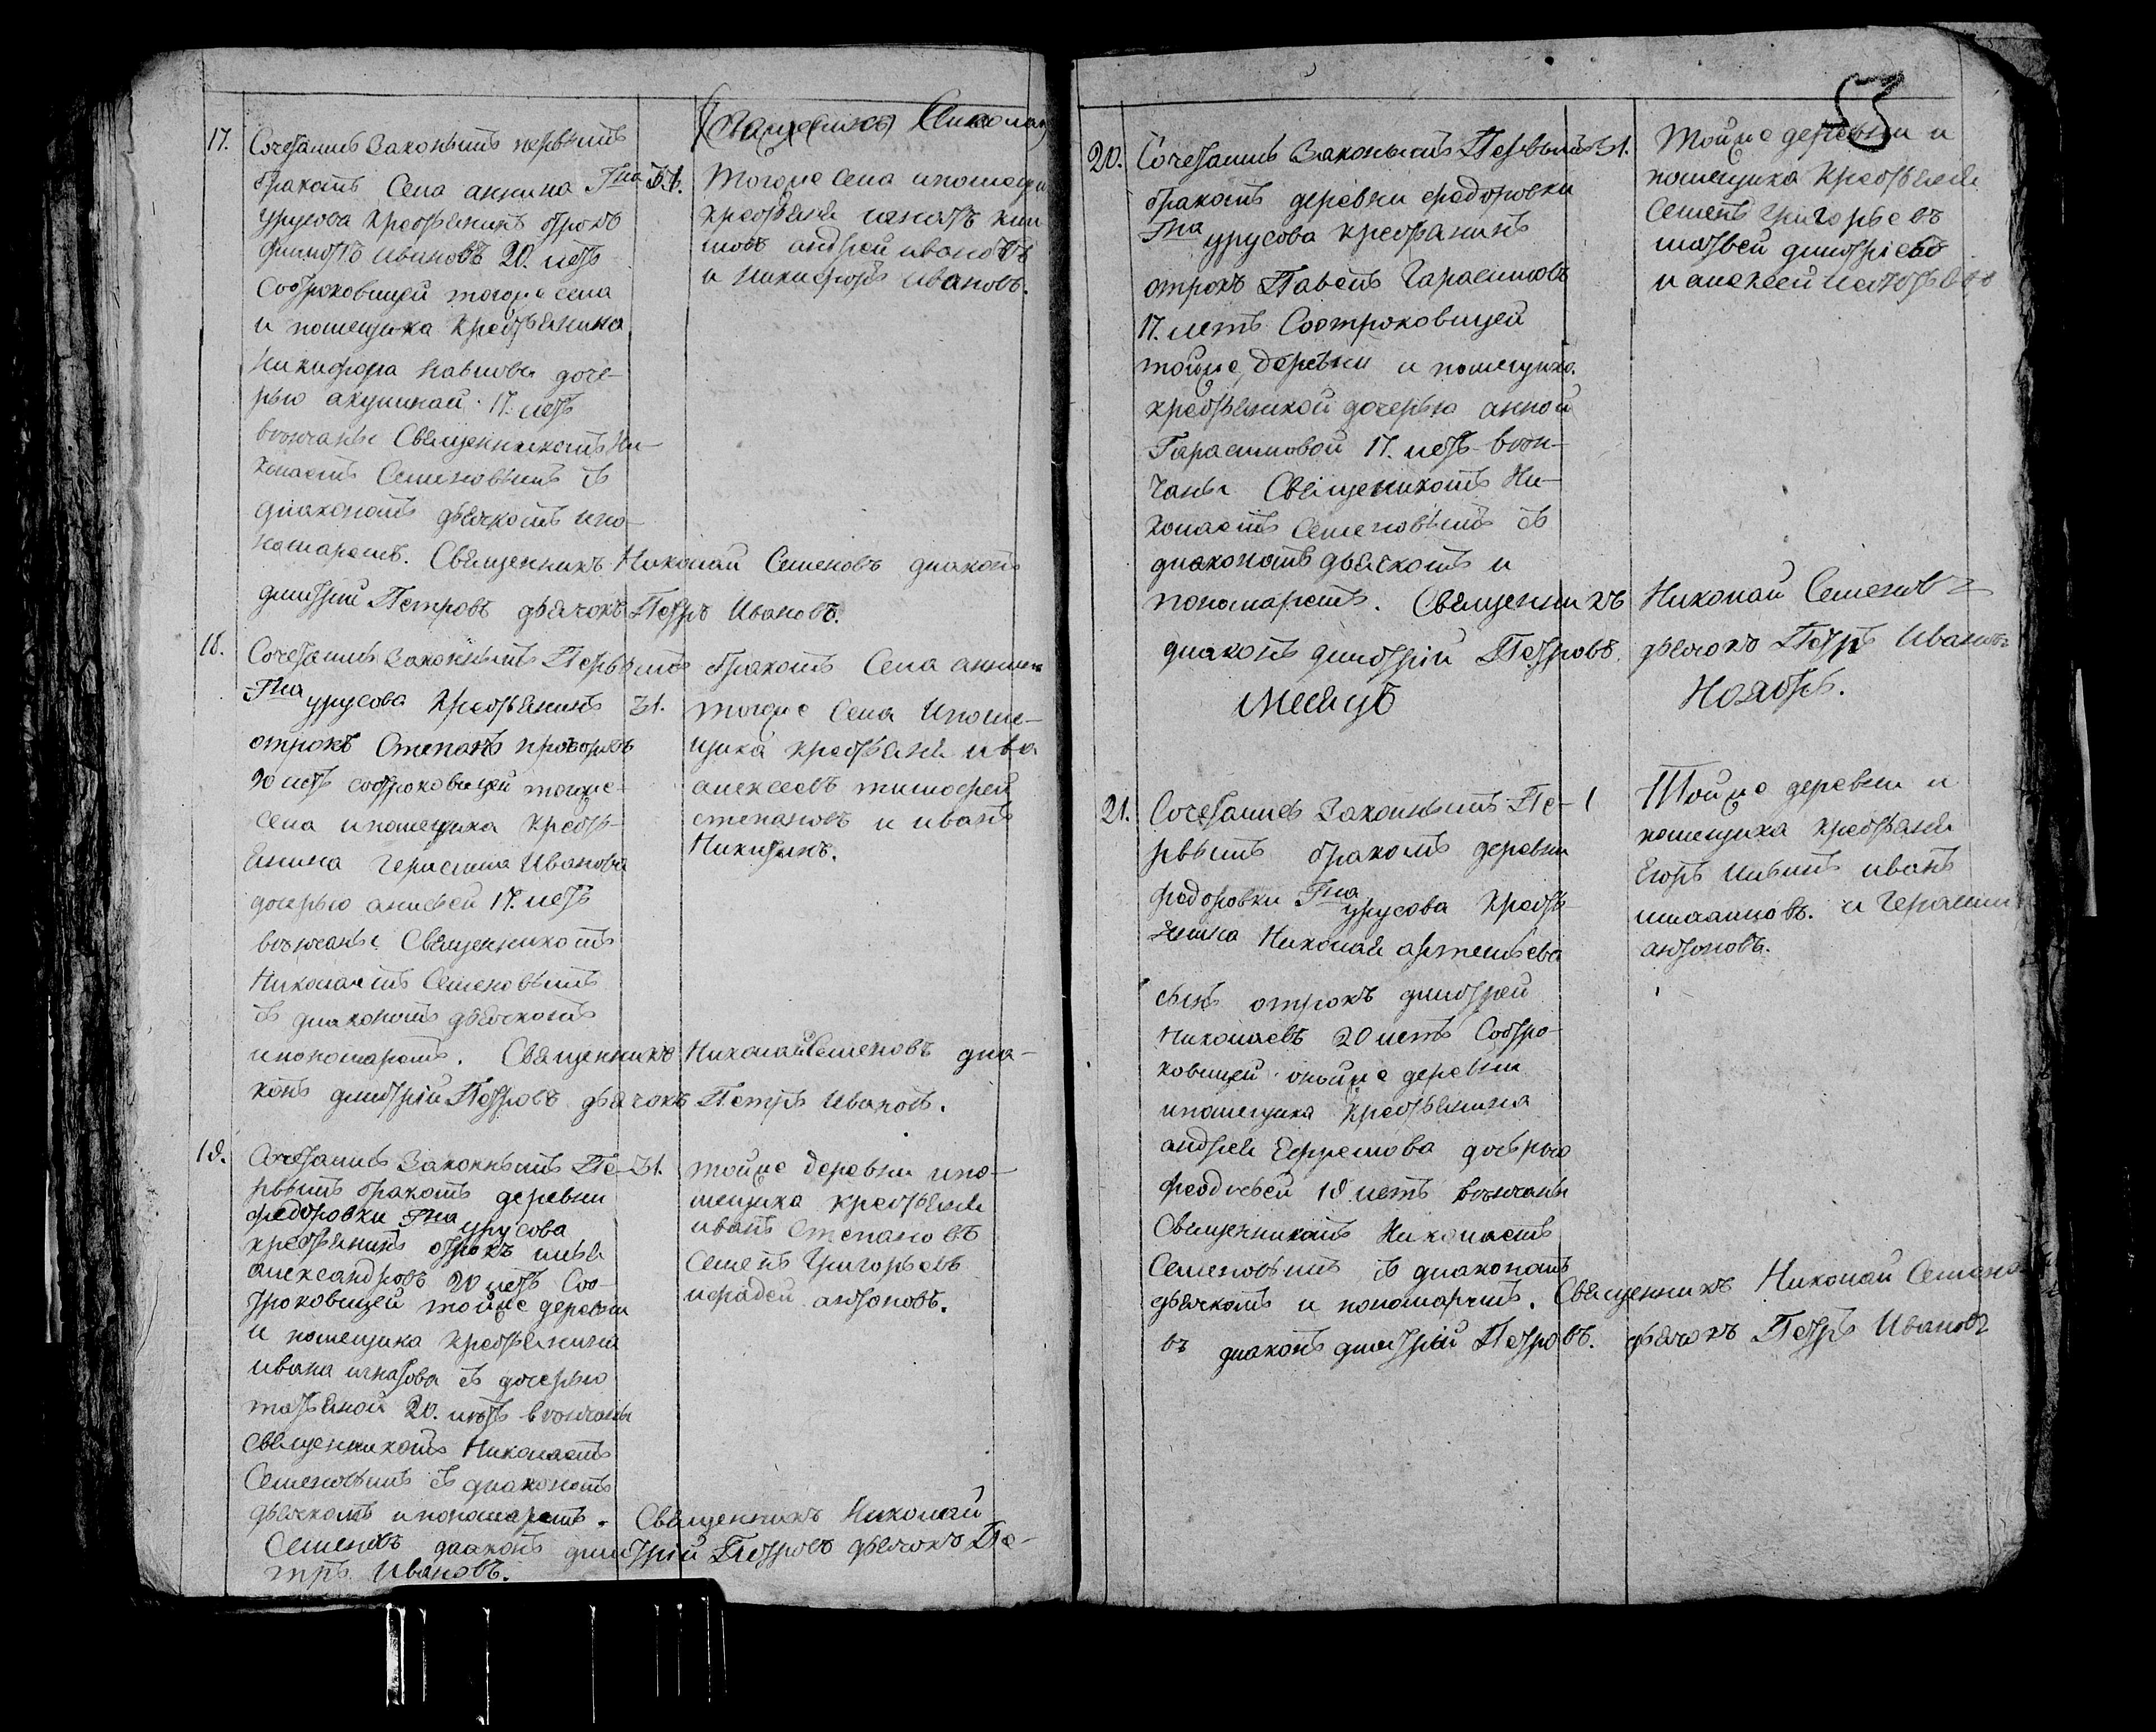 Священникъ Николай
17.
Сочетанъ Законымъ первымъ
бракомъ Села аннина Гна
урусова крестьянинъ отрокъ
филиптъ ивановъ 20. летъ
Сотроковицей тогоже села
и помещика крестьянина
Никифора Павлова доче-
рью акулиной 17. летъ
венчаны Священникомъ Ни-
колаемъ Семеновымъ съ
диакономъ дьячкомъ ипо-
номаремъ. Священникъ Николай Семеновъ диаконъ
димитрій Петровъ дьячокъ Петръ Ивановъ.
31.
Тогоже Села ипомещи
крестьяня
андрей ивановъ
и Никифоръ Ивановъ.
18.
Сочетанъ Законнымъ Первымъ бракомъ Села аннина
Гна урусова Крестьянинъ
отрокъ Степанъ
20 летъ сотроковицей тогоже
села ипомещика крестья-
янина Герасима Иванова
дочерью анисьей 17. летъ
венчаны Священникомъ
Николаемъ Семеновымъ
съ диакономъ дьячкомъ
ипономаремъ. Священникъ Николай Семеновъ диа-
конъ димитрій Петровъ дьячокъ Петръ Ивановъ.
31.
тогоже Села Ипоме-
щика крестьяня ива
алексеевъ тимофей
степановъ и иванъ
Никитинъ.
19.
Сочетанъ Законнымъ Пе-
рвымъ бракомъ деревни
федоровки Гна урусова
крестьянинъ отрокъ илья
александровъ 20 летъ Соо-
троковицей тойже деревни
и помещика крестьянина
ивана игнатова съ дочерью
татьяной 20. летъ венчаны
священникомъ Николаемъ
Семеновымъ съ диакономъ
дьячкомъ ипономаремъ. Священникъ Николай
Семеновъ диаконъ димитрій Петровъ дьячокъ Пе-
тръ Ивановъ.
31.
тойже деревни ипо-
мещика крестьяня
иванъ Степановъ
Семенъ Григорьевъ
ифадей антоновъ.
53
20.
Сочетанъ Законымъ Первымъ
бракомъ деревни федоровки
Гна урусова крестьянинъ
отрокъ Павелъ Гарасимовъ
17. летъ Соотроковицей
тойже деревни и помещика
крестьянской дочерью анной
Гарасимовой 17. летъ вен-
чаны Священикомъ Ни-
колаемъ Семеновымъ съ
диакономъ дьячкомъ и
пономаремъ. Священникъ Николай Семеновъ
диаконъ димитрій Петровъ. дьячокъ Петръ Ивановъ
31.
Тойже деревни и
помещика Крестьяня
Семенъ Григорьевъ
матвей димитріевъ
и алексей
Месяцъ Ноябрь.
21.
Сочетанъ Законнымъ Пе-
рвымъ бракомъ деревни
федоровки Гна урусова Кресть-
янина Николая артемьева
сынъ отрокъ димитрей
Николаевъ 20 летъ Сотро-
ковицей оныйже деревни
ипомещика крестьянина
андрея Ефремова дочерью
феодосьей 18 летъ венчаны
Священникомъ Николаемъ
Семеновымъ съ диакономъ
дьячкомъ и пономаремъ. Священникъ Николай Семено
въ диаконъ димитрій Петровъ. дьячокъ Петръ Ивановъ
1
Тойже деревни и
помещика крестьяня
Егоръ Ильинъ иванъ
и Герасимъ
антоновъ.